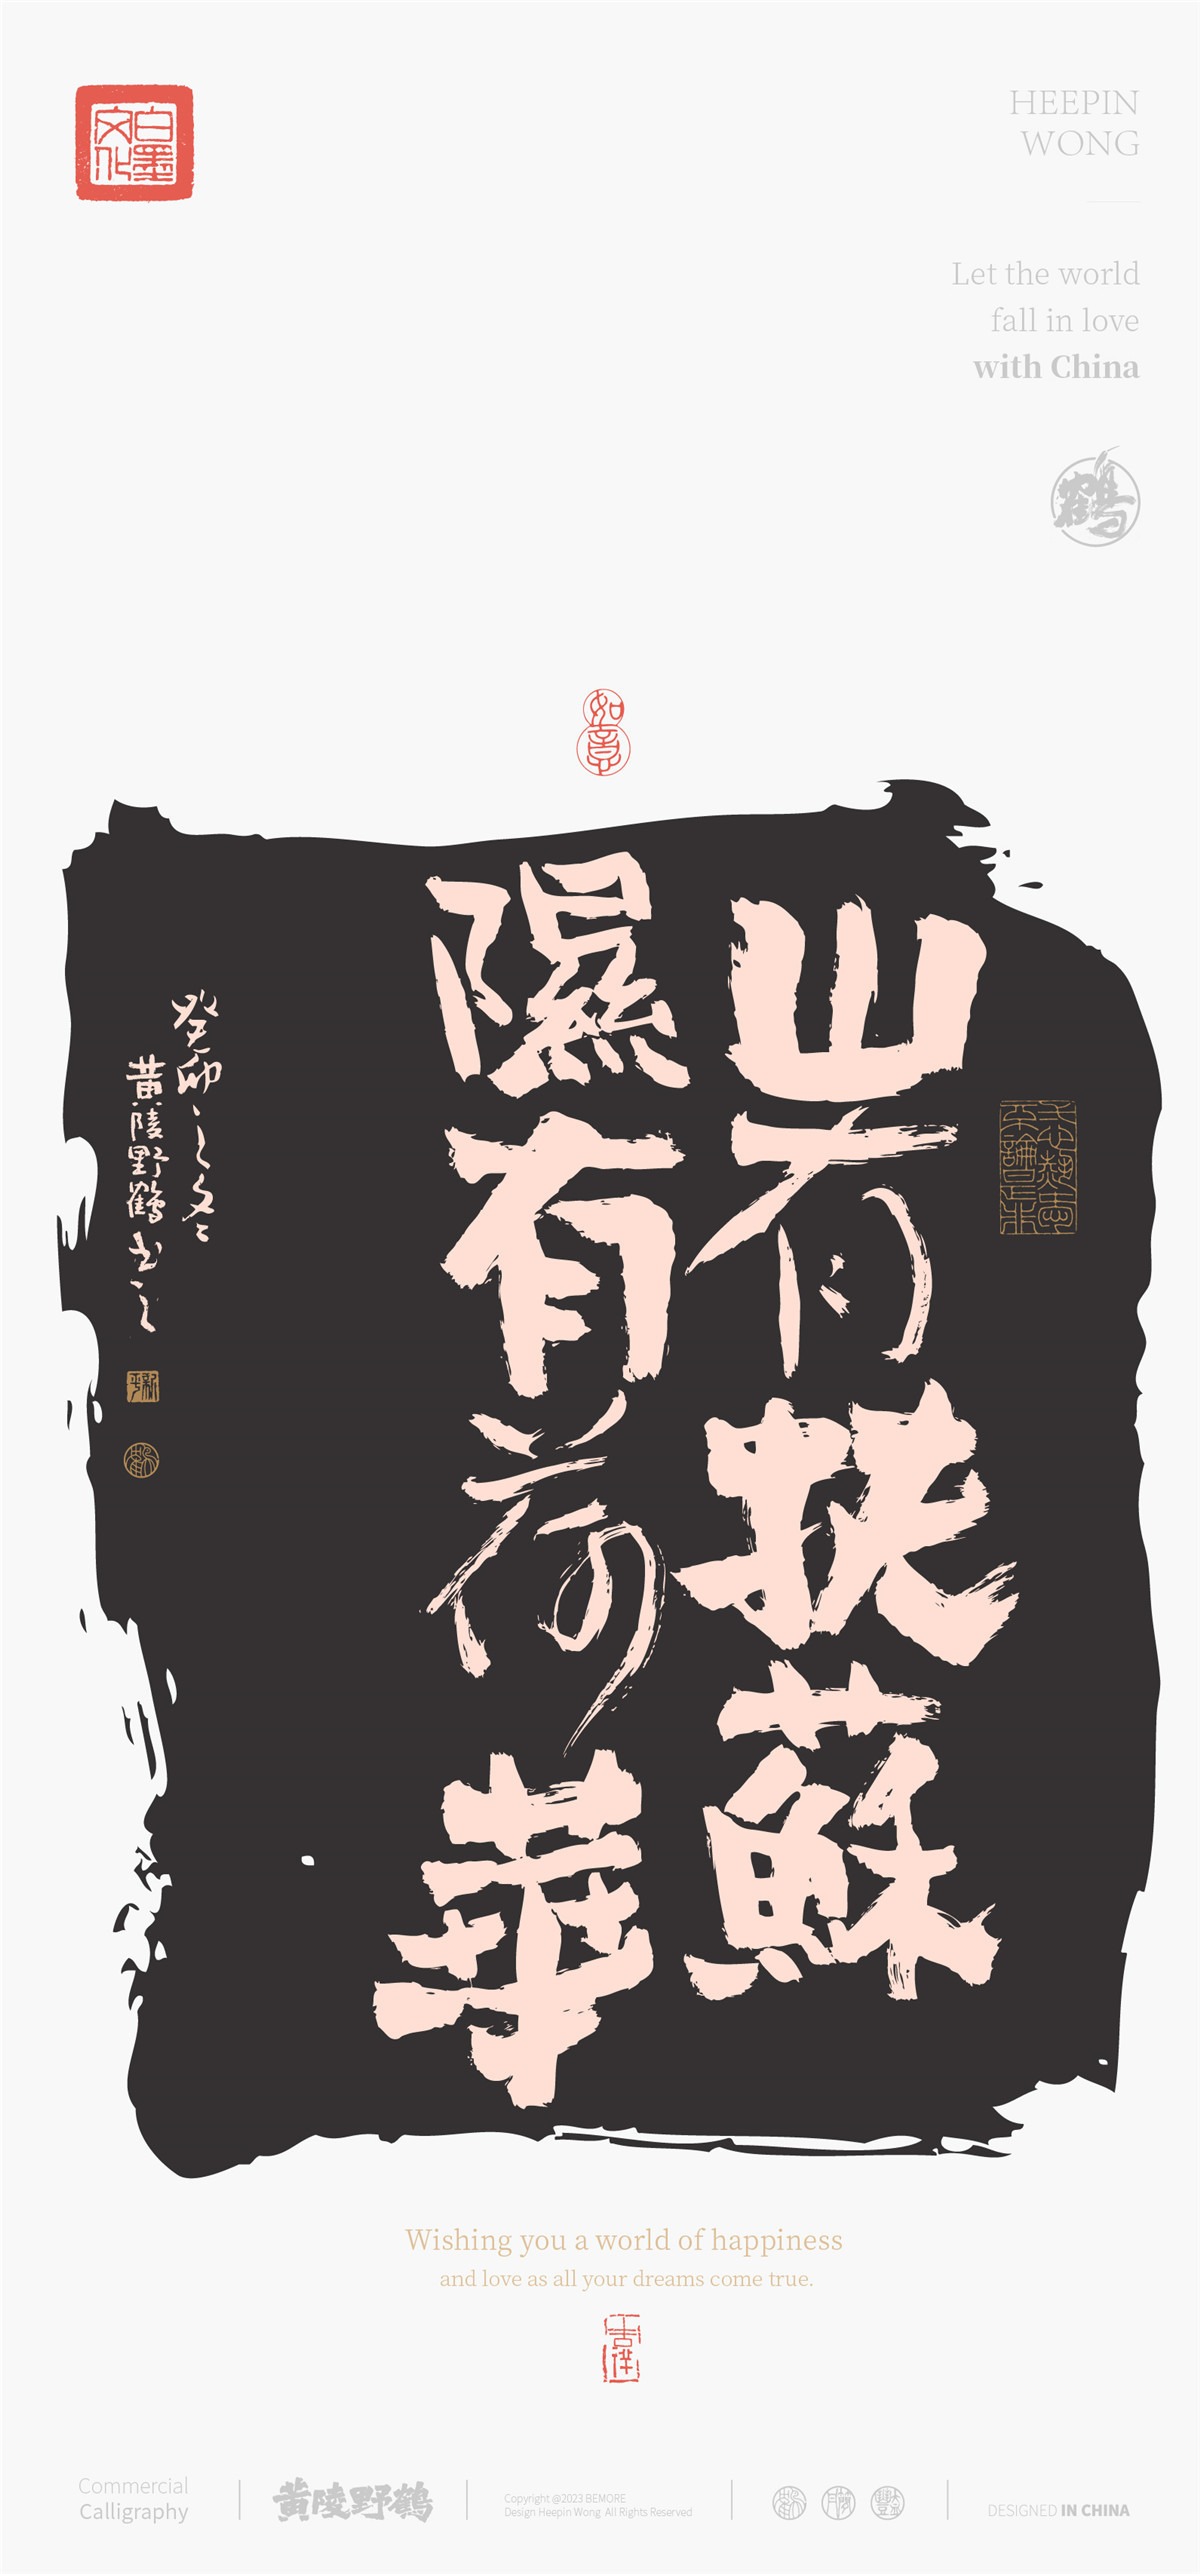 白墨
文化
HEEPIN
WONG
Let the world
fall in love
with China
鶴
如意
山有扶蘇
隰有荷華
癸卯之冬
黄陵野鶴書之
Wishing you a world of happiness
and love as all your dreams come true.
吉祥
Commercial
Calligraphy
黄陵野鶴
Copyright @2023 BEMORE
Design Heepin Wong All Rights Reserved
DESIGNED IN CHINA